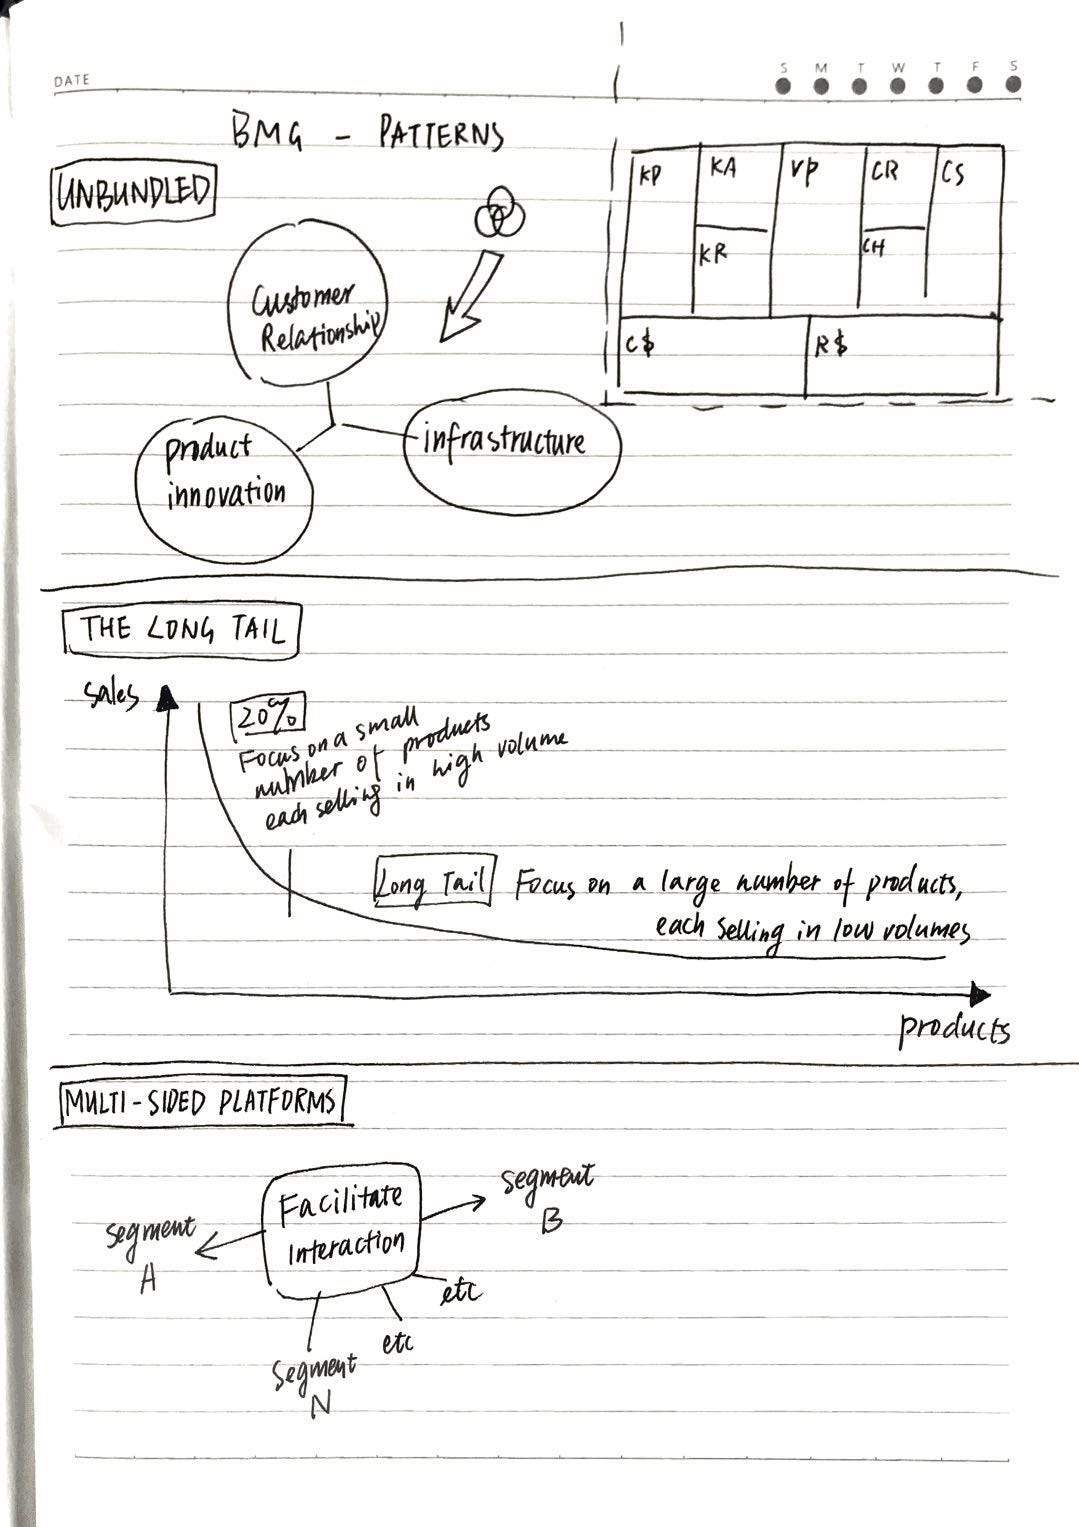 DATE
S M T W T F S
BMG - PATTERNS
UNBUNDLED
KP
KA
VP
CR
CS
KR
CH
C$
R$
Customer
Relationship
product
innovation
infrastructure
THE LONG TAIL
sales
20%
Focus on a small
number of products
each selling in high volume
Long Tail
Focus on a large number of products,
each selling in low volumes
products
MULTI-SIDED PLATFORMS
Facilitate
interaction
segment
B
segment
A
etc
etc
segment
N